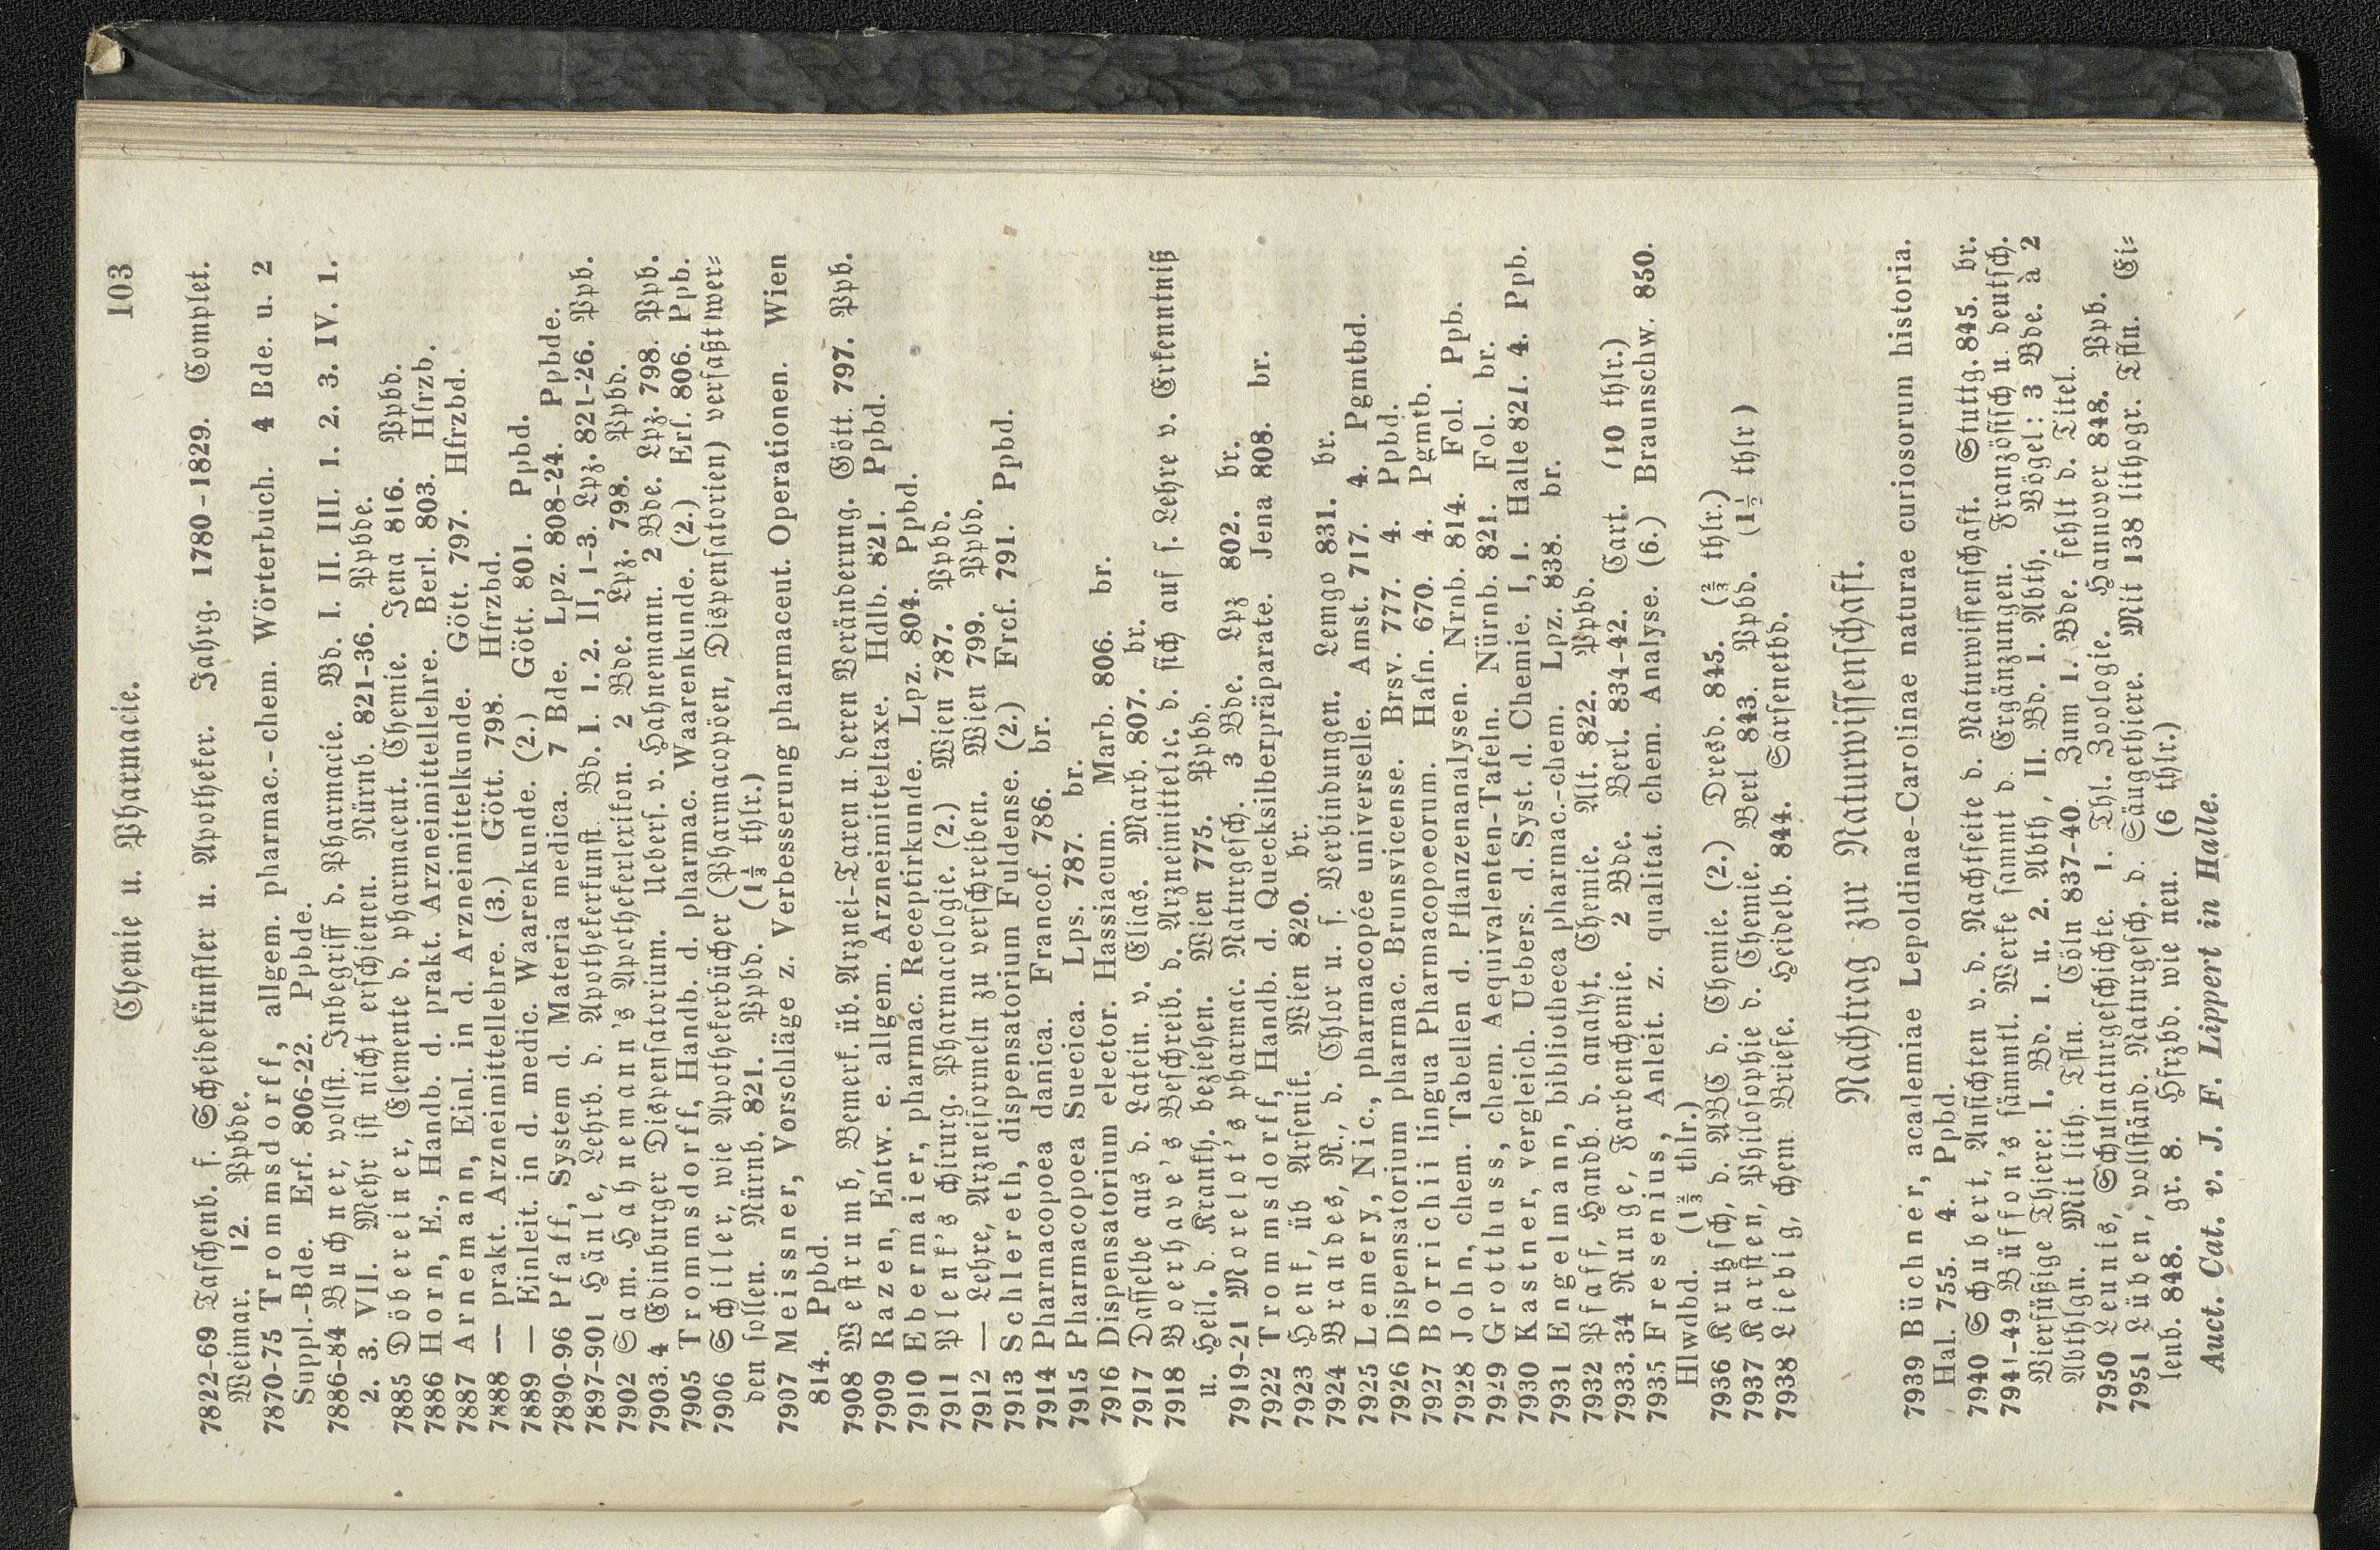 Chemie u. Pharmacie. 103
7822-69 Taschenb. f. Scheidekünstler u. Apotheker. Jahrg. 1780-1829. Complet.
Weimar. 12. Ppbde.
7870-75 Trommsdorff, allgem. pharmac.-chem. Wörterbuch. 4 Bde. u. 2
Suppl.-Bde. Erf. 806-22. Ppbde.
7886-84 Buchner, vollst. Inbegriff d. Pharmacie. Bd. I. II. III. 1. 2. 3. IV. 1.
2. 3. VII. Mehr ist nicht erschienen. Nürnb. 821-36. Ppbde.
7885 Döbereiner, Elemente d. pharmaceut. Chemie. Jena 816. Ppbd.
7886 Horn, E., Handb. d. prakt. Arzneimittellehre. Berl. 803. Hfrzb.
7887 Arnemann, Einl. in d. Arzneimittelkunde. Gött. 797. Hfrzbd.
7888 — prakt. Arzneimittellehre. (3.) Gött. 798. Hfrzbd.
7889 — Einleit. in d. medic. Waarenkunde. (2.) Gött. 801. Ppbd.
7890-96 Pfaff, System d. Materia medica. 7 Bde. Lpz. 808-24. Ppbde.
7897-901 Hänle, Lehrb. d. Apothekerkunst. Bd. I. 1. 2. II, 1-3. Lpz. 821-26. Ppb.
7902 Sam. Hahnemann's Apothekerlexikon. 2 Bde. Lpz. 798. Ppbd.
7903.4 Edinburger Dispensatorium. Uebers. v. Hahnemann. 2 Bde. Lpz. 798. Ppb.
7905 Trommsdorff, Handb. d. pharmac. Waarenkunde. (2.) Erf. 806. Ppb.
7906 Schiller, wie Apothekerbücher (Pharmacopöen, Dispensatorien) verfaßt wer=
den sollen. Nürnb. 821. Ppbd. (1⅓ thlr.)
7907 Meissner, Vorschläge z. Verbesserung pharmaceut. Operationen. Wien
814. Ppbd.
7908 Westrumb, Bemerk. üb. Arznei-Taxen u. deren Veränderung. Gött. 797. Ppb.
7909 Razen, Entw. e. allgem. Arzneimitteltaxe. Hdlb. 821. Ppbd.
7910 Ebermaier, pharmac. Receptirkunde. Lpz. 804. Ppbd.
7911 Plenk's chirurg. Pharmacologie. (2.) Wien 787. Ppbd.
7912 — Lehre, Arzneiformeln zu verschreiben. Wien 799. Ppbd.
7913 Schlereth, dispensatorium Fuldense. (2.) Frcf. 791. Ppbd.
7914 Pharmacopoea danica. Francof. 786. br.
7915 Pharmacopoea Suecica. Lps. 787. br.
7916 Dispensatorium elector. Hassiacum. Marb. 806. br.
7917 Dasselbe aus d. Latein. v. Elias. Marb. 807. br.
7918 Boerhave's Beschreib. d. Arzneimittel ꝛc. d. sich auf s. Lehre v. Erkenntniß
u. Heil. d. Krankh. beziehen. Wien 775. Ppbd.
7919-21 Morelot's pharmac. Naturgesch. 3 Bde. Lpz 802. br.
7922 Trommsdorff, Handb. d. Quecksilberpräparate. Jena 808. br.
7923 Henk, üb Arsenik. Wien 820. br.
7924 Brandes, R., d. Chlor u. s. Verbindungen. Lemgo 831. br.
7925 Lemery, Nic., pharmacopée universelle. Amst. 717. 4. Pgmtbd.
7926 Dispensatorium pharmac. Brunsvicense. Brsv. 777. 4. Ppbd.
7927 Borrichii lingua Pharmacopoeorum. Hafn. 670. 4. Pgmtb.
7928 John, chem. Tabellen d. Pflanzenanalysen. Nrnb. 814. Fol. Ppb.
7929 Grotthuss, chem. Aequivalenten-Tafeln. Nürnb. 821. Fol. br.
7930 Kastner, vergleich. Uebers. d. Syst. d. Chemie. I, 1. Halle 821. 4. Ppb.
7931 Engelmann, bibliotheca pharmac.-chem. Lpz. 838. br.
7932 Pfaff, Handb. d. analyt. Chemie. Alt. 822. Ppbd.
7933.34 Runge, Farbenchemie. 2 Bde. Berl. 834-42. Cart. (10 thlr.)
7935 Fresenius, Anleit. z. qualitat. chem. Analyse. (6.) Braunschw. 850.
Hlwdbd. (1⅔ thlr.)
7936 Krutzsch, d. ABC d. Chemie. (2.) Dresd. 845. (⅔ thlr.)
7937 Karsten, Philosophie d. Chemie. Berl 843. Ppbd. (1½ thlr)
7938 Liebig, chem. Briefe. Heidelb. 844. Sarsenetbd.
Nachtrag zur Naturwissenschaft.
7939 Büchner, academiae Lepoldinae-Carolinae naturae curiosorum historia.
Hal. 755. 4. Ppbd.
7940 Schubert, Ansichten v. d. Nachtseite d. Naturwissenschaft. Stuttg. 845. br.
7941-49 Büffon's sämmtl. Werke sammt d. Ergänzungen. Französisch u. deutsch.
Vierfüßige Thiere: I. Bd. 1. u. 2. Abth, II. Bd. 1. Abth. Vögel: 3 Bde. à 2
Abthlgn. Mit lith. Tfln. Cöln 837-40. Zum 1. Bde. fehlt d. Titel.
7950 Leunis, Schulnaturgeschichte. 1. Thl. Zoologie. Hannover 848. Ppb.
7951 Lüben, vollständ. Naturgesch. d. Säugethiere. Mit 138 lithogr. Tfln. Ei=
lenb. 848. gr. 8. Hfrzbd. wie neu. (6 thlr.)
Auct. Cat. v. J. F. Lippert in Halle.